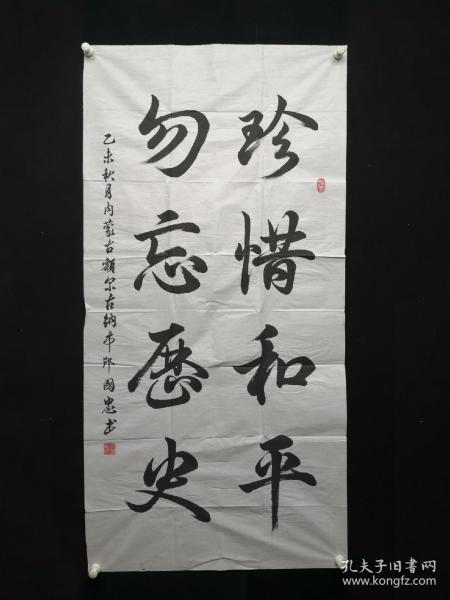 珍惜和平
勿忘歷史
乙未秋月内蒙古額尔古納市邓國忠书
孔夫子旧书网
www.kongfz.com